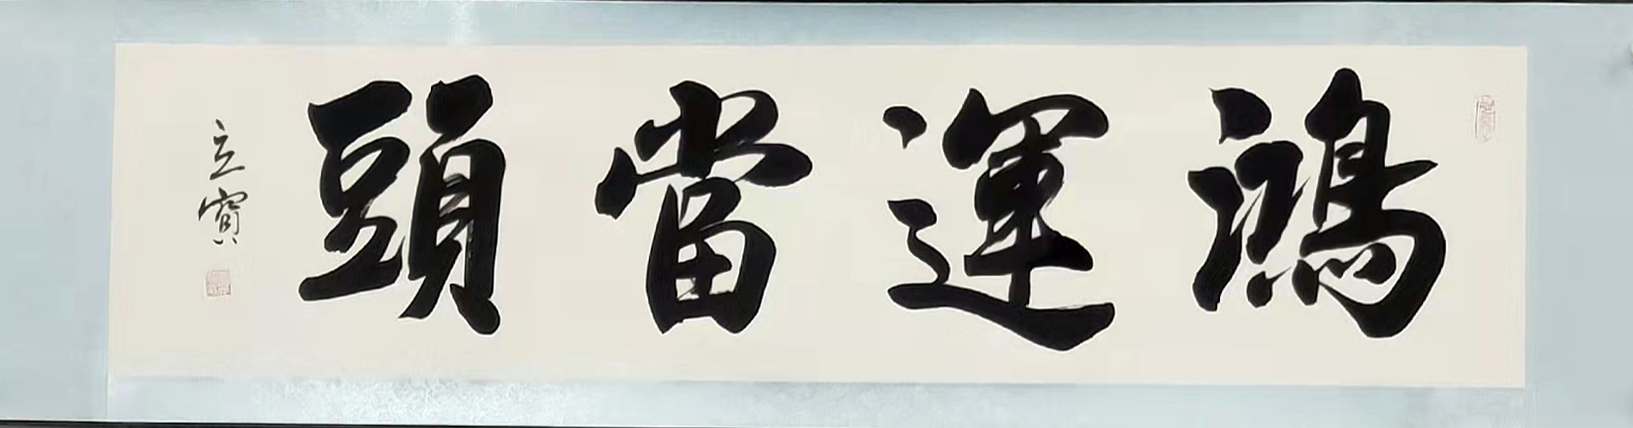 鴻運當頭
立寳